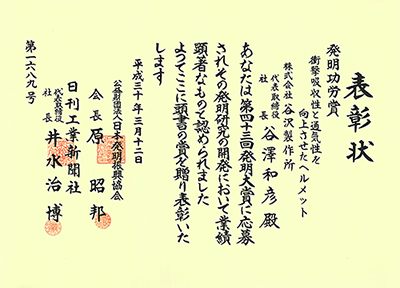 表彰状
発明功労賞
衝撃吸収性と通気性を
向上させたヘルメット
株式会社谷沢製作所
代表取締役
社長 谷澤和彦殿
あなたは第四十三回発明大賞に応募
されその発明研究の開発において業績
顕著なものて認められました
よってここに頭書の賞を贈り表彰いた
します
平成三十年三月十二日
公益財団法人日本発明振興協会
会長 原昭邦
日刊工業新聞社
代表取締役
社長 井水治博
第一六八九号